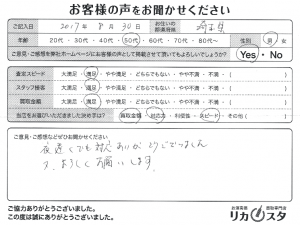 お客様の声をお聞かせください
ご記入日 2017年 8月30日 お住いの都道府県 埼玉県
年齢 20代・30代・40代・50代・60代・70代・80代〜 性別 男・女
ご意見・ご感想などを弊社ホームページにお客様の声として掲載させて頂いてもよろしいでしょうか? Yes・No
査定スピード 大満足・満足・やや満足・どちらでもない・やや不満・不満
スタッフ接客 大満足・満足・やや満足・どちらでもない・やや不満・不満
買取金額 大満足・満足・やや満足・どちらでもない・やや不満・不満
当店をお選びいただきました決め手は? 買取金額・対応力・利便性・スピード・その他( )
ご意見・ご感想などぜひお聞かせください
夜遅くでも対応ありがとうございました
又、よろしくお願いします。
ご協力ありがとうございました。
この度は誠にありがとうございました。
お酒買取 買取専門店
リカスタ